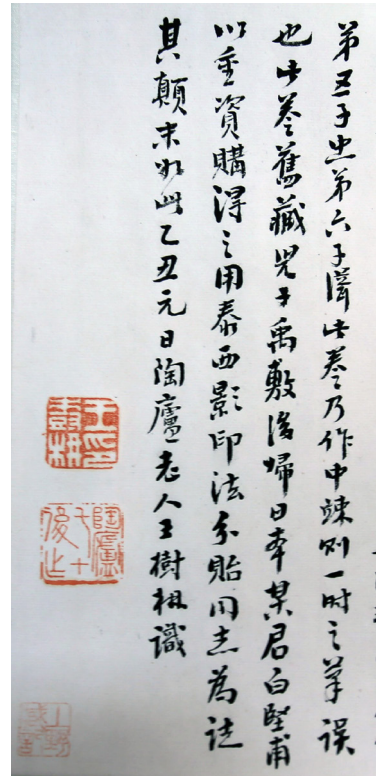 弟五子忠弟六子聳此卷乃作中竦則一時之筆誤
也此卷舊藏兒子禹敷後歸日本某君白堅甫
以重資購得之用泰西影印法分貽同志為誌
其顛末如此乙丑元日陶廬老人王樹枏識
陶廬
七十
後作